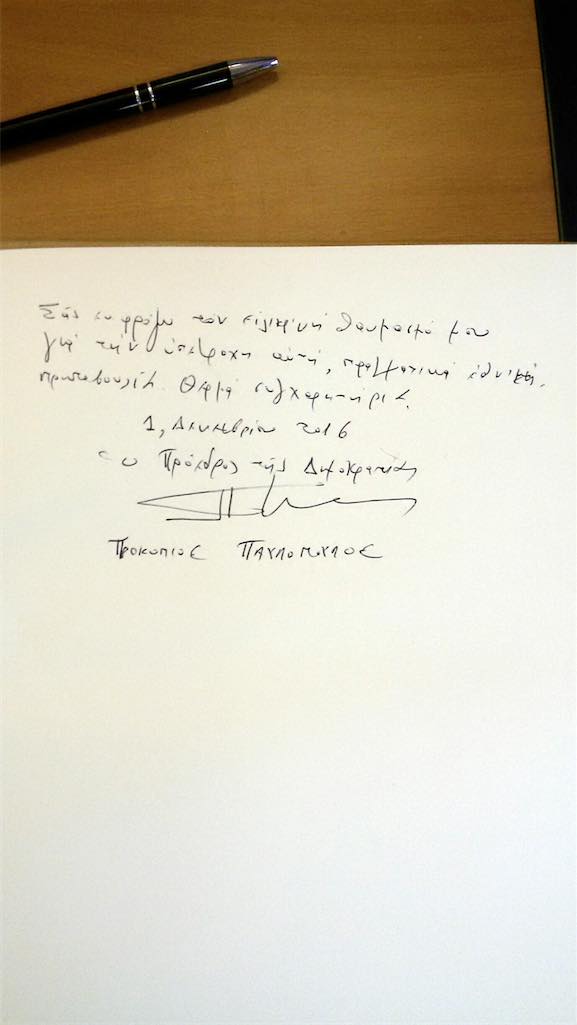 Σᾶς ἐκφράζω τὸν εἰλικρινῆ θαυμασμό μου
γιὰ τὴν ὑπέροχη αὐτή, πραγματικά ἐθνική,
πρωτοβουλία. Θερμά συγχαρητήρια.
1, Δεκεμβρίου 2016
Ὁ Πρόεδρος τῆς Δημοκρατίας
ΠΡΟΚΟΠΙΟΣ ΠΑΥΛΟΠΟΥΛΟΣ